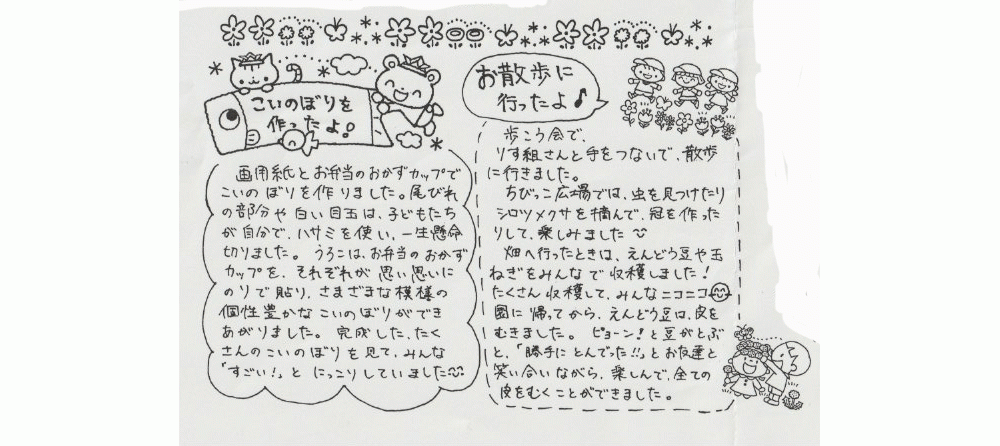 こいのぼりを
作ったよ！
画用紙とお弁当のおかずカップで
こいのぼりを作りました。尾びれ
の部分や白い目玉は、子どもたち
が自分で、ハサミを使い、一生懸命
切りました。うろこは、お弁当のおかず
カップを、それぞれが思い思いに
のりで貼り、さまざまな模様の
個性豊かなこいのぼりができ
あがりました。完成した、たく
さんのこいのぼりを見て、みんな
「すごい！」とにっこりしていました
お散歩に
行ったよ♪
歩こう会で、
りす組さんと手をつないで、散歩
に行きました。
ちびっこ広場では、虫を見つけたり
シロツメクサを摘んで、冠を作った
りして、楽しみました
畑へ行ったときは、えんどう豆や玉
ねぎをみんなで収穫しました！
たくさん収穫して、みんなニコニコ
園に帰ってから、えんどう豆は、皮を
むきました。ピョーン！と豆がとぶ
と、「勝手にとんでった!!」とお友達と
笑い合いながら、楽しんで、全ての
皮をむくことができました。